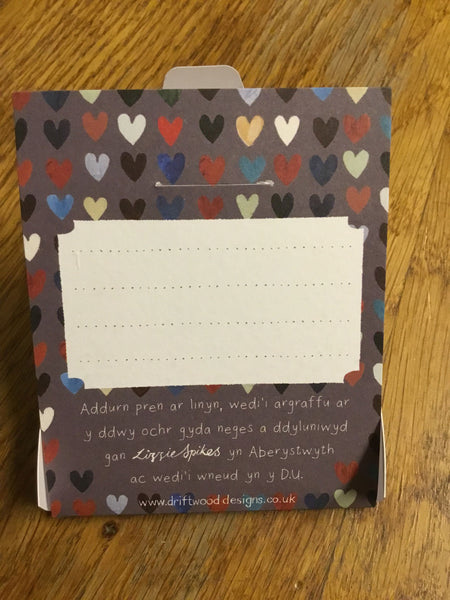 Addurn pren ar linyn, wedi'i argraffu ar
y ddwy ochr gyda neges a ddyluniwyd
gan Lizzie Spikes yn Aberystwyth
ac wedi'i wneud yn y D.U.
www.driftwooddesigns.co.uk